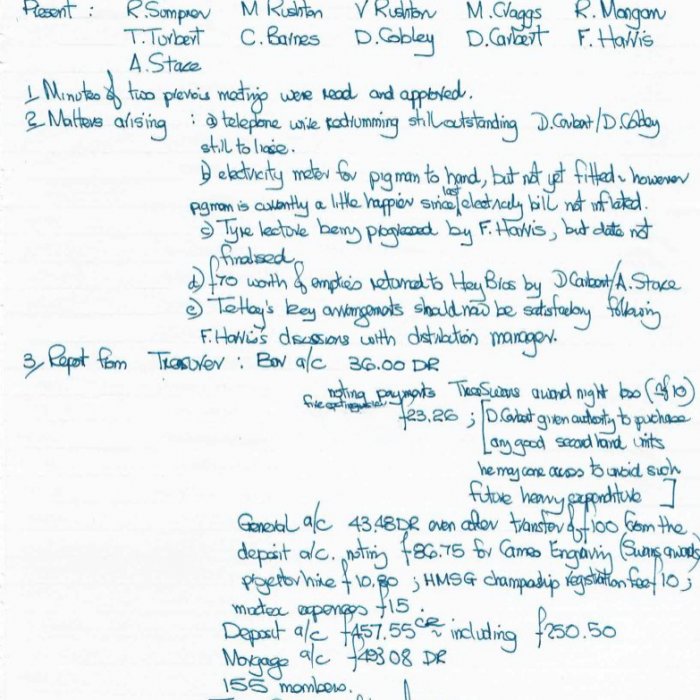 Present : R. Sumpner M Rushton V Rushton M. Craggs R. Mangam
T. Turbert C. Barnes D. Cobley D. Corbert F. Harris
A. Stace
1, Minutes of two previous meetings were read and approved.
2, Matters arising : a) telephone wire still outstanding D. Corbert / D. Cobley
still to liaise.
b) electricity meter for pigman to hand, but not yet fitted ~ however
pigman is currently a little happier since last electricity bill not inflated.
c) Tyre lecture being progressed by F. Harris, but date not
finalised.
d) £70 worth of empties returned to Hey Bros by D Corbert/A. Stace
e) Tetley's key arrangements should now be satisfactory following
F. Harris's discussions with distribution manager.
3, Report from Treasurer : Bar a/c 36.00 DR
noting payments Swans award night
fire extinguisher £23.26 ; [D. Corbert given authority to purchase
any good second hand units
he may come across to avoid such
future heavy expenditure ]
General a/c 43.48 DR even after transfer of £100 from the
deposit a/c. noting £86.75 for Cameo Engraving (Swans awards)
projector hire £10.80 ; HMSG championship registration fee £10 ;
expenses £15.
Deposit a/c £457.55 CR ~ including £250.50
Mortgage a/c DR
155 members.